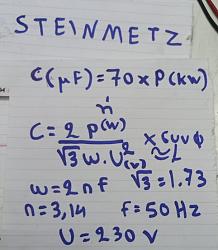 STEINMETZ
C(μF)=70×P(kw)
n
C=2 P(w)
√3 w.U²(v)
w=2nf √3=1.73
n=3,14 f=50Hz
U=230V